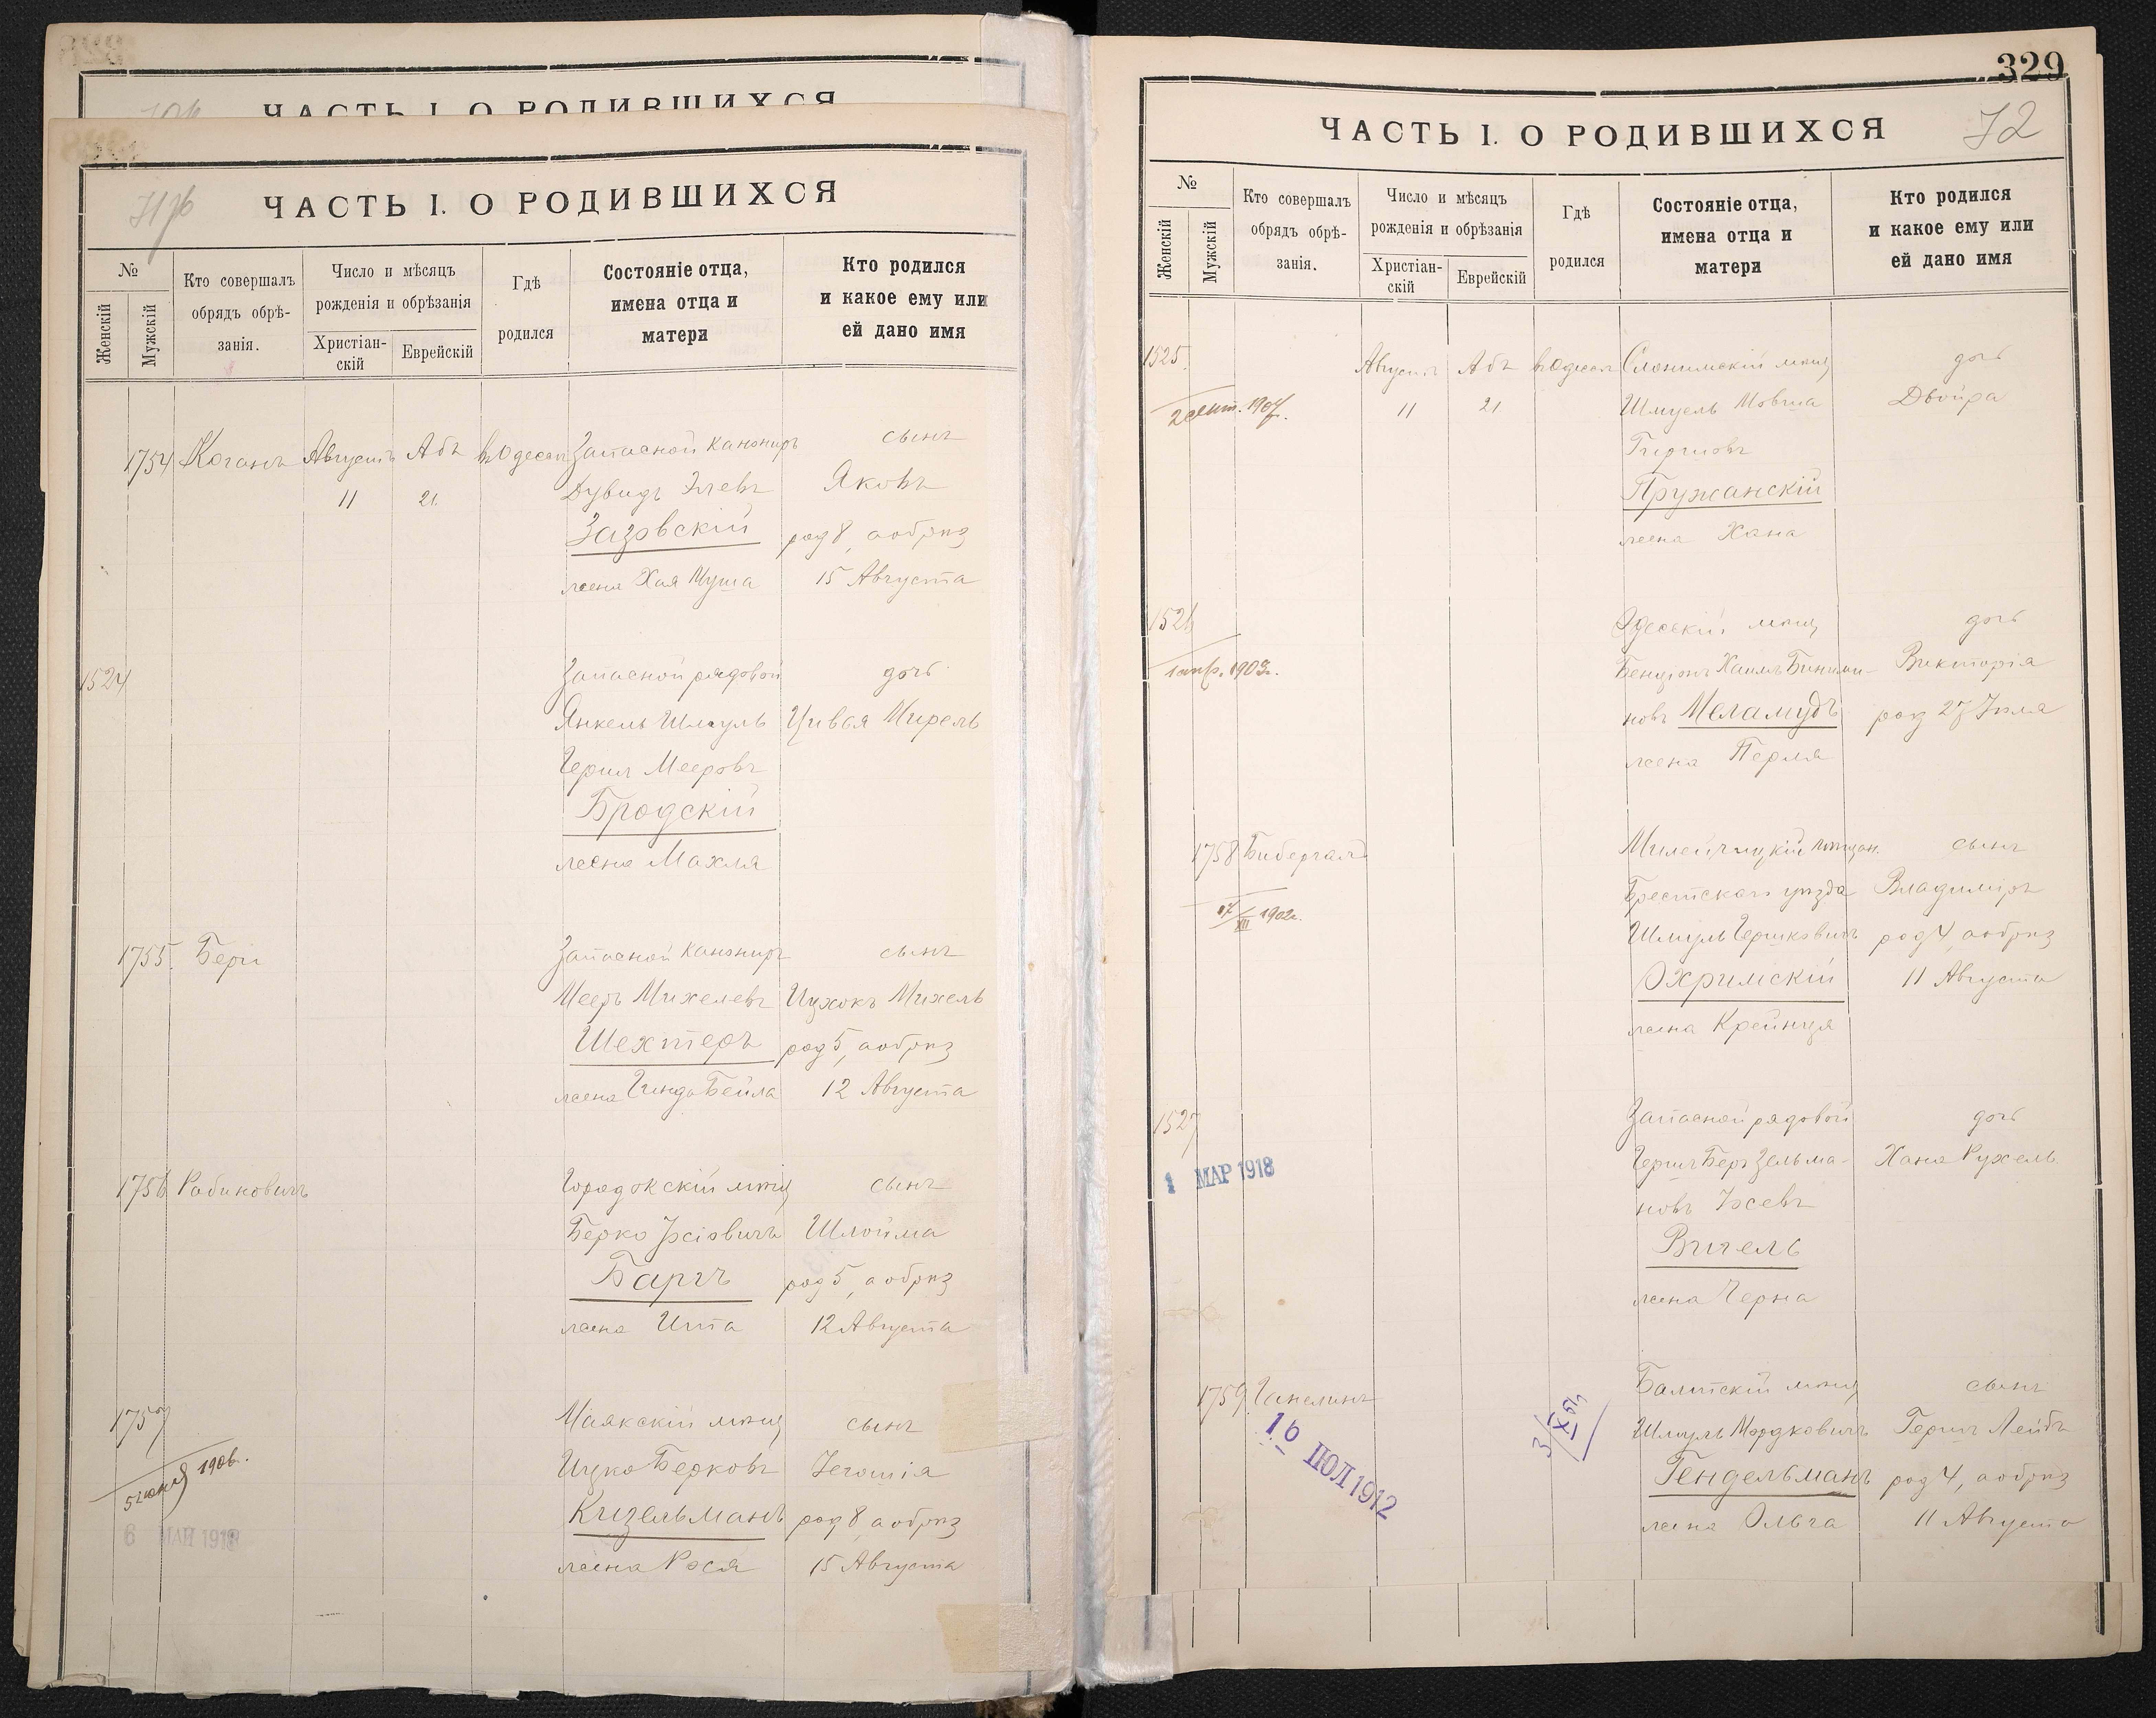 ЧАСТЬ I. О РОДИВШИХСЯ
71
ЧАСТЬ I. О РОДИВШИХСЯ
№
Женскій
Мужскій
Кто совершалъ
обрядъ обрѣ-
занія.
Число и мѣсяцъ
рожденія и обрѣзанія
Христіан-
скій
Еврейскій
Гдѣ
родился
Состояніе отца,
имена отца и
матери
Кто родился
и какое ему или
ей дано имя
1754 Коганъ Августъ Абъ въ Одессѣ Запасной канониръ сынъ
11 21 Дувидъ Яковъ
Зазовскій род 8, а обрѣз
жена Хая Муша 15 Августа
1524 Запасной рядовой дочь
Янкель Шмуль Цивья Мирель
Герш Мееровъ
Бродскій
жена Махля
1755. Запасной канониръ сынъ
Мееръ Михелевъ Ицхокъ Михель
Шехтеръ род 5, а обрѣз
жена Гинда Бейла 12 Августа
1756 Рабиновичъ Городокскій мѣщ сынъ
Берко Іосіовичъ Шлойма
Баргъ род 5, а обрѣз
жена Ита 12 Августа
1757 Маякскій мѣщ сынъ
5 іюня 1906. Ицко Берковъ Іегошія
Кизельманъ род 8, а обрѣз
6 МАЙ 1918
жена Рося 15 Августа
329
72
ЧАСТЬ I. О РОДИВШИХСЯ
№
Женскій
Мужскій
Кто совершалъ
обрядъ обрѣ-
занія.
Число и мѣсяцъ
рожденія и обрѣзанія
Христіан-
скій
Еврейскій
Гдѣ
родился
Состояніе отца,
имена отца и
матери
Кто родился
и какое ему или
ей дано имя
1525. Августъ Абъ въ Одессѣ Слонимскій мѣщ дочь
2 сент. 1907. 11 21 Шмуель Мовша Двойра
Гиршовъ
Пружанскій
жена Хана
1526 Одесскій мѣщ дочь
1903. Бенціонъ Хаимъ Биньями- Викторія
новъ Меламудъ род 27 Іюля
жена Перля
1758 Бибергалъ Милейчицкій мѣщан. сынъ
Брестскаго уѣзда Владиміръ
17/XII 1902г. Шмуль Гершковичъ род 4, а обрѣз
Охримскій 11 Августа
жена Крейнця
1527 Запасной рядовой дочь
1 МАР 1918 Герш Беръ Зельма- Хана Рухель
новъ Іосевъ
Вигель
жена Черна
1759. Ганелинъ Балтскій мѣщ сынъ
16 ІЮЛ 1912 Шмуль Мордковичъ Герш Лейбъ
Гендельманъ род 4, а обрѣз
жена Ольга 11 Августа